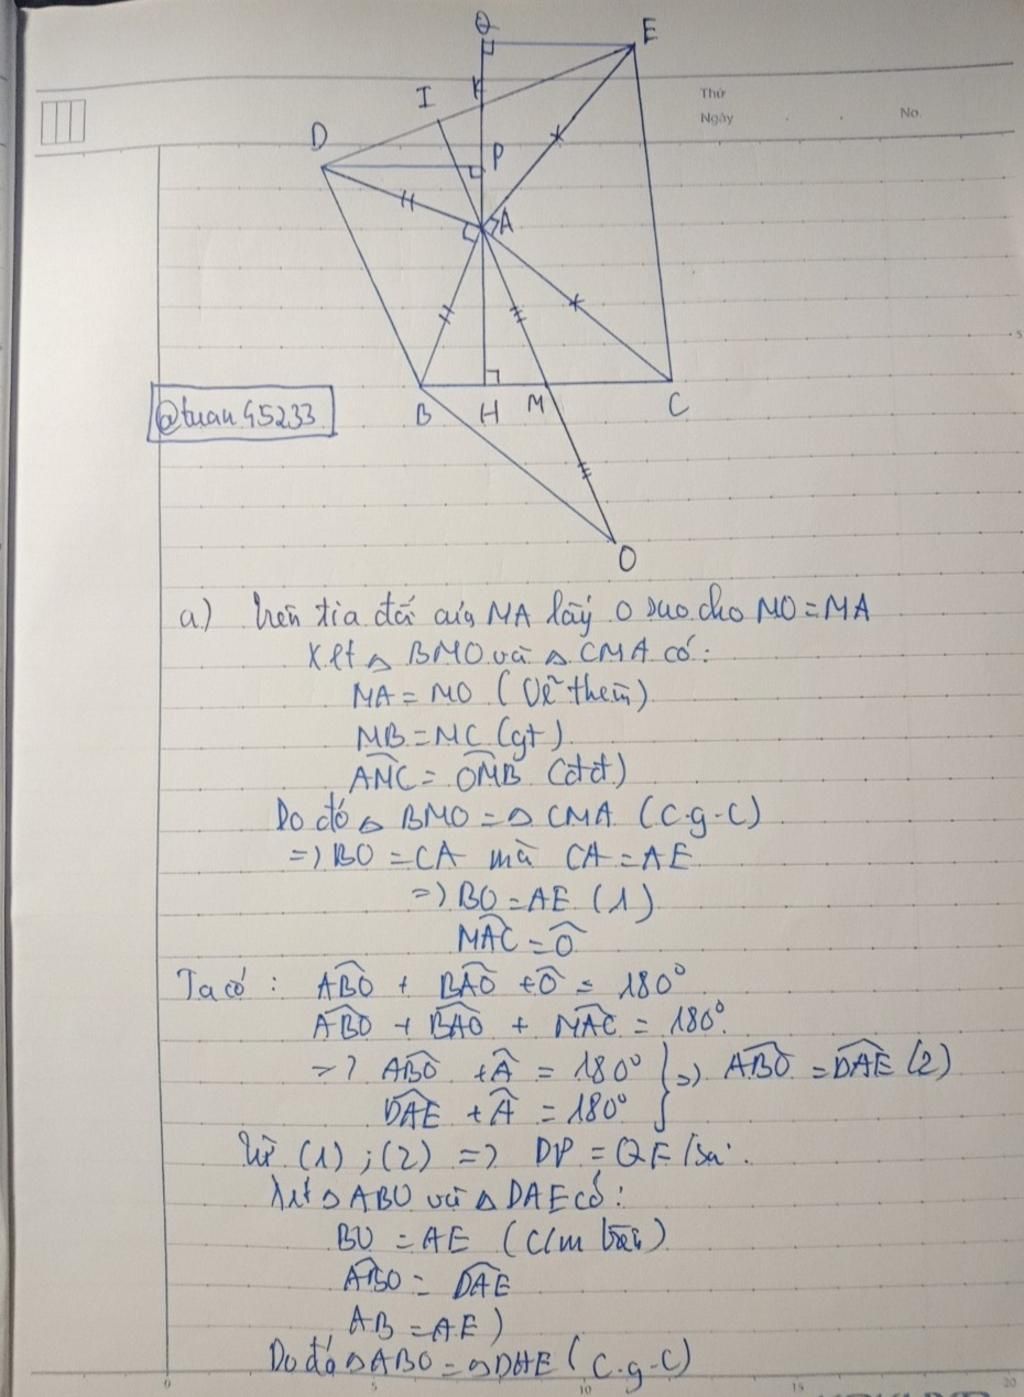 Q
E
K
I
Thứ
Ngày
No.
D
P
A
@tuan45233
B H M C
O
a) Trên tia đối của MA lấy O sao cho MO = MA
Xét △ BMO và △ CMA có:
MA = MO (Vẽ thêm)
MB = MC (gt)
AMC = OMB (đđ)
Do đó △ BMO = △ CMA (c.g.c)
=> BO = CA mà CA = AE
=> BO = AE (1)
MAC = O
Ta có: ABO + BAO + O = 180°
ABO + BAO + MAC = 180°
=> ABO + A = 180° } => ABO = DAE (2)
DAE + A = 180°
Từ (1); (2) => DP = QE
Xét △ ABO và △ DAE có:
BO = AE (C/m trên)
ABO = DAE
AB = AE)
Do đó △ ABO = △ DAE (c.g.c)
0 5 10 15 20